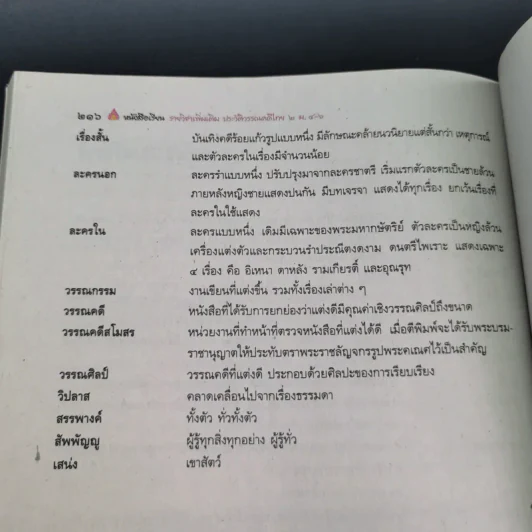 ๒๑๖ หนังสือเรียน รายวิชาเพิ่มเติม ประวัติวรรณคดีไทย ๒ ม. ๔-๖
เรื่องสั้น บันเทิงคดีร้อยแก้วรูปแบบหนึ่ง มีลักษณะคล้ายนวนิยายแต่สั้นกว่า เหตุการณ์
และตัวละครในเรื่องมีจำนวนน้อย
ละครนอก ละครรำแบบหนึ่ง ปรับปรุงมาจากละครชาตรี เริ่มแรกตัวละครเป็นชายล้วน
ภายหลังหญิงชายแสดงปนกัน มีบทเจรจา แสดงได้ทุกเรื่อง ยกเว้นเรื่องที่
ละครในใช้แสดง
ละครใน ละครแบบหนึ่ง เดิมมีเฉพาะของพระมหากษัตริย์ ตัวละครเป็นหญิงล้วน
เครื่องแต่งตัวและกระบวนรำประณีตงดงาม ดนตรีไพเราะ แสดงเฉพาะ
๔ เรื่อง คือ อิเหนา ดาหลัง รามเกียรติ์ และอุณรุท
วรรณกรรม งานเขียนที่แต่งขึ้น รวมทั้งเรื่องเล่าต่าง ๆ
วรรณคดี หนังสือที่ได้รับการยกย่องว่าแต่งดีมีคุณค่าเชิงวรรณศิลป์ถึงขนาด
วรรณคดีสโมสร หน่วยงานที่ทำหน้าที่ตรวจหนังสือที่แต่งได้ดี เมื่อตีพิมพ์จะได้รับพระบรม-
ราชานุญาตให้ประทับตราพระราชลัญจกรรูปพระคเณศไว้เป็นสำคัญ
วรรณศิลป์ วรรณคดีที่แต่งดี ประกอบด้วยศิลปะของการเรียบเรียง
วิปลาส คลาดเคลื่อนไปจากเรื่องธรรมดา
สรรพางค์ ทั้งตัว ทั่วทั้งตัว
สัพพัญญู ผู้รู้ทุกสิ่งทุกอย่าง ผู้รู้ทั่ว
เสน่ง เขาสัตว์